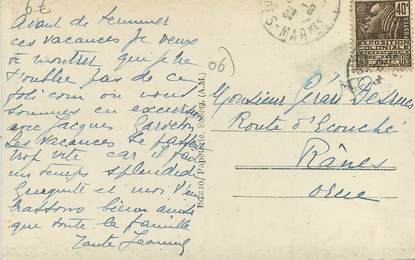 6€
Avant de terminer
ces vacances je veux
te montrer que je ne
t'oublie pas de ce
joli coin où nous
sommes en excursion
avec Jacques
Les vacances se passent
trop vite car il fait
un temps splendide
et moi t'em
brassons bien ainsi
que toute la famille
Tante Jeanne
06
Monsieur Gérard
Route d'Ecouché
Rânes
Orne
40c
EXPOSITION
COLONIALE